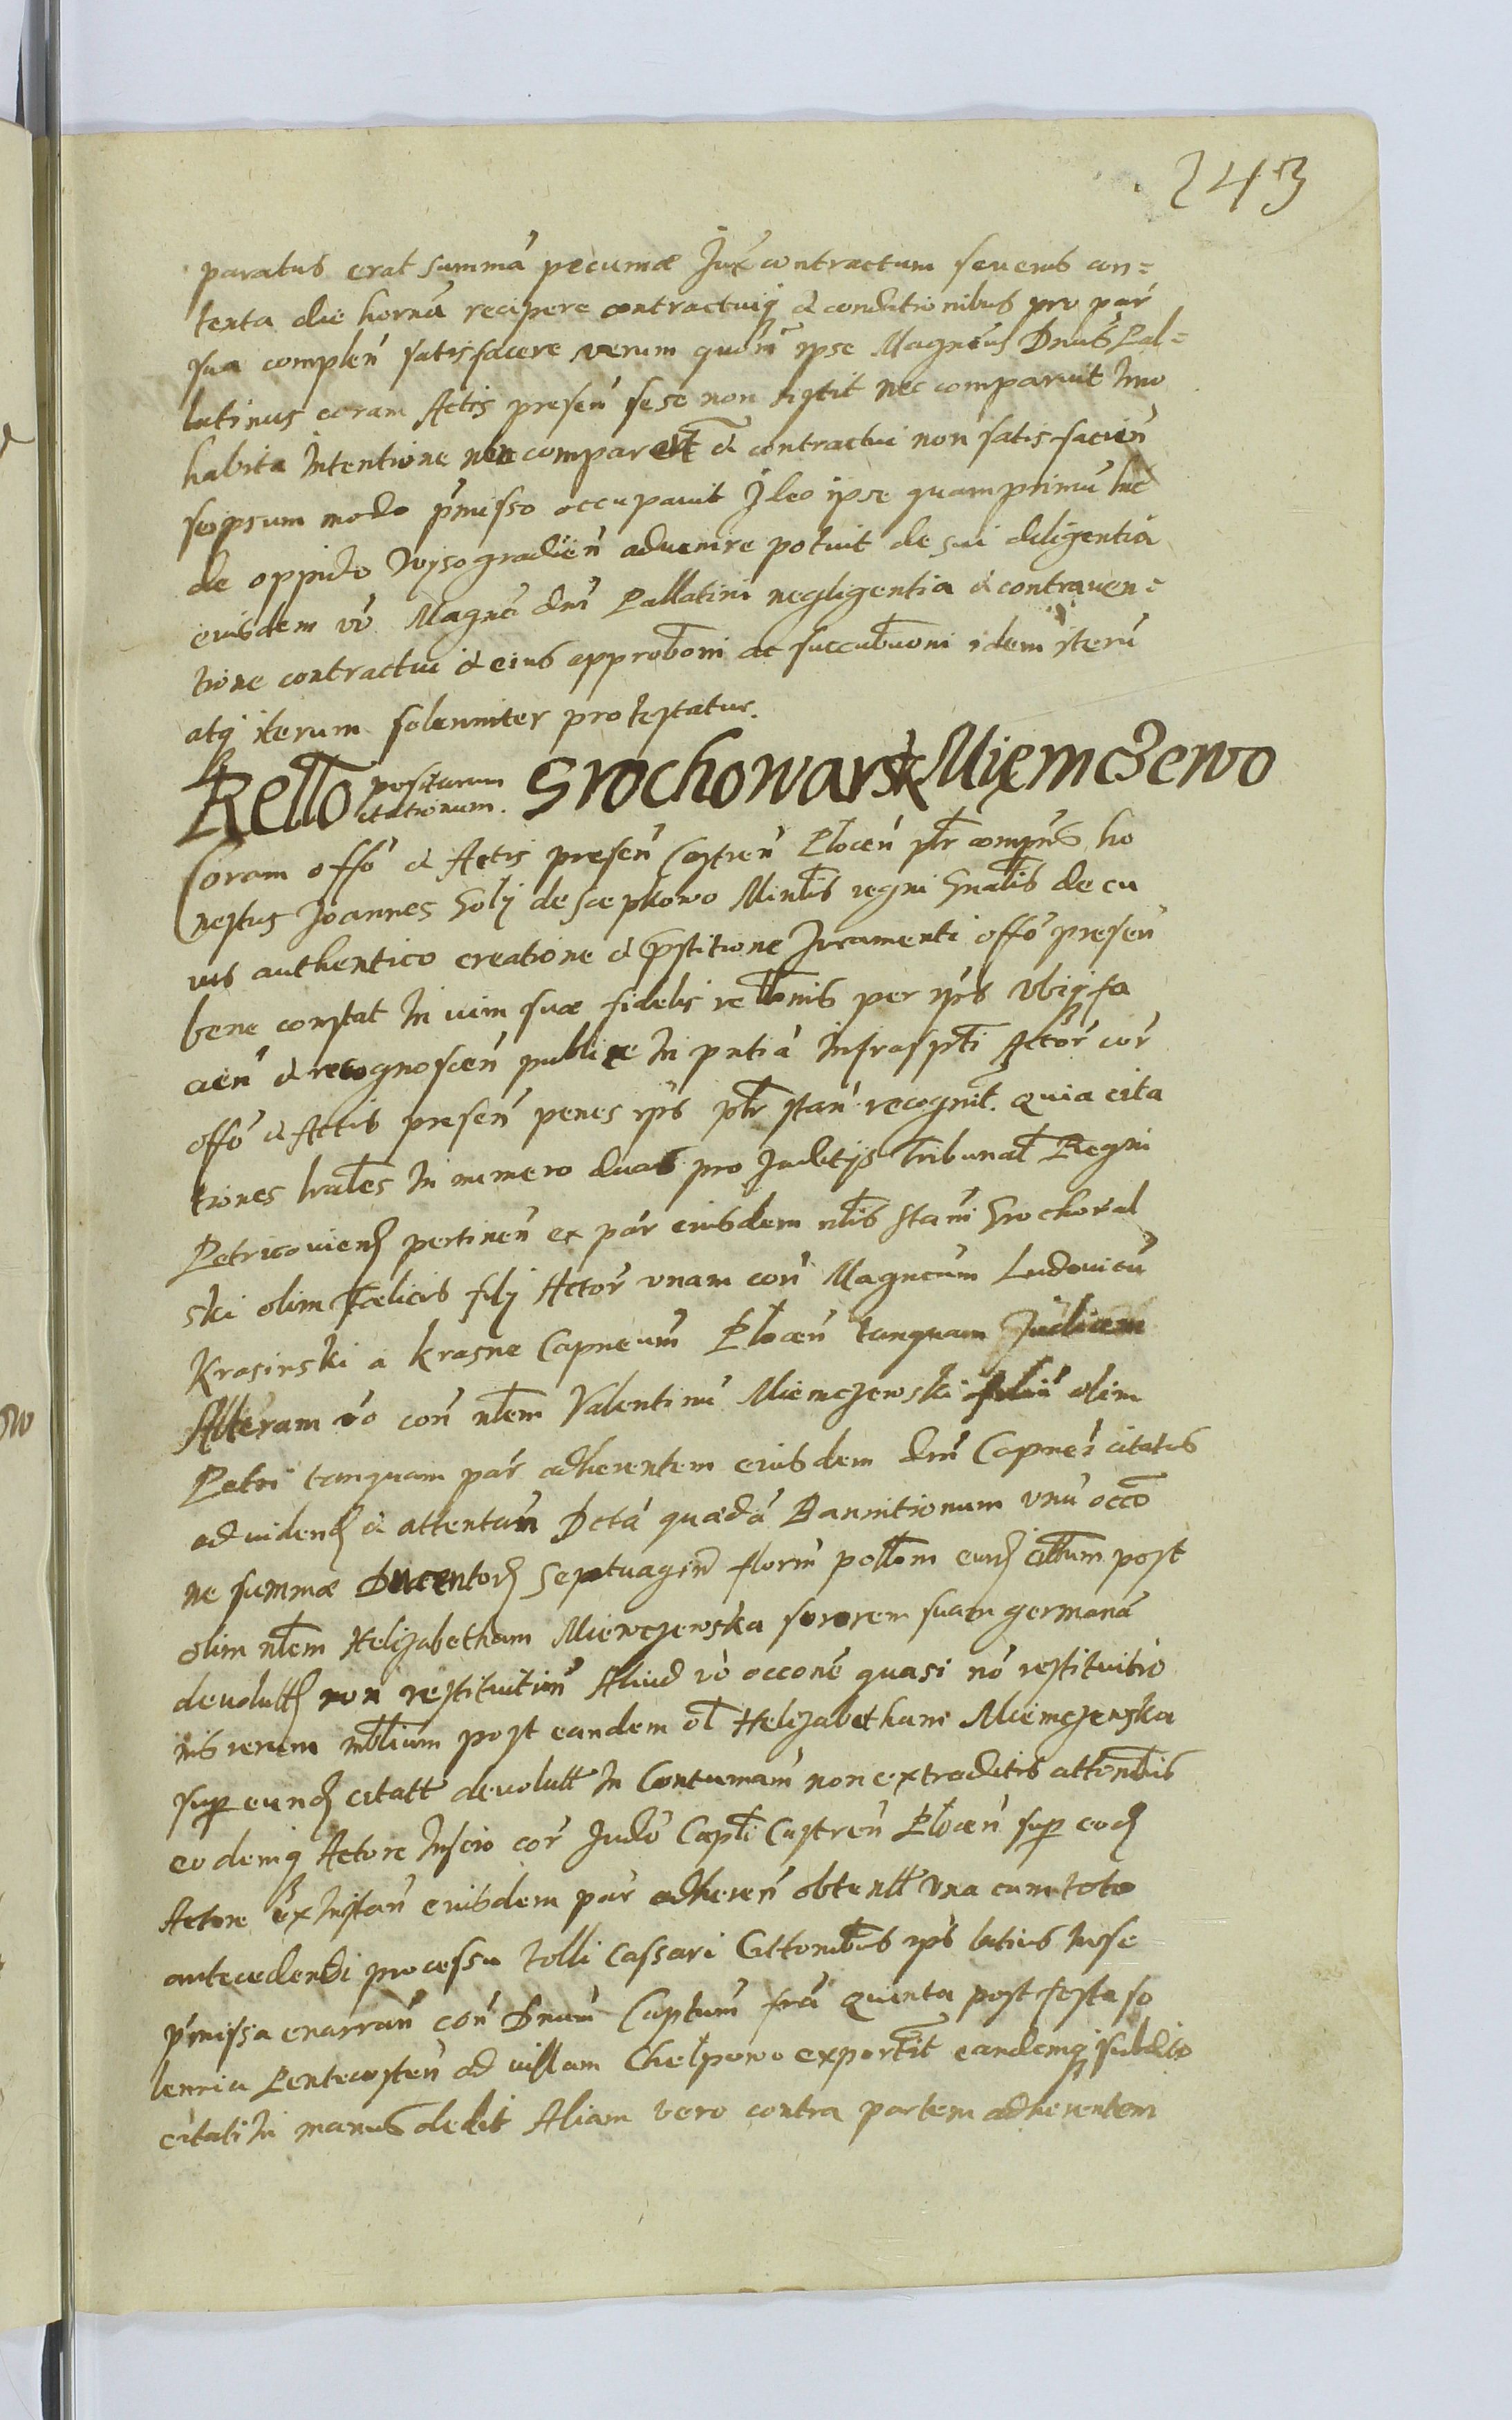 243
paratus erat summā pecuniæ Jux contractum severus con=
tenta die horna recipere contractuiq & conditionibus pro par
sua compleń satisfacere verum quoń ipse Magńcus Dńus Pal=
latinus coram Actis preseń sese non stitit nec comparuit Imo
habita Intentione non comparēt & contractui non satisfacień
seipsum modo p̃misso occupavit Ideo ipse quamprimū huc
de oppido Wysogradień advenire potuit de sui diligentia
eiusdem vō Magńci dńi Pallatini negligentia & contraven=
tione contractui & eius approbōni ac succubuōni idem iterū
atq iterum solenniter protestatur.
Rello positarum citationum. Grochowarsk Miemczewo
Coram offō & Actis preseń Castreń Płoceń płr compńs ho
nestus Joannes Goły de Scepkowo Minłis regni Gnałis de cu
ius authentico creatione & prestitione Juramenti offō preseń
bene constat In vim suæ fidelis relłonis per ip̄s ubiq fa
cień & recognosceń publice In pntiā Infrasptī Actor̄ cor̄
offō & Actis preseń penes ip̄s płr stań recognīt. Quia cita
tiones lrałes In numero duas pro Judicijs Tribunał Regni
Petricovień pertineń ex par eiusdem nłis Stań Grochoval
ski olim Fœlicis filj Actor̄ unam coń Magńcum Ludovicū
Krasinski a Krasne Capneum̄ Płoceń tanquam Judicem
Alteram vō coń nłem Valentinū Miemczewski filiū olim
Petri tanquam par adherentem eiusdem dńi Capnei citatus
ad videnď & attentań Dctā quædā Bannitionum unū occō
ne summæ Ducentoꝝ Septuagin florin̄ połłom eunď cittum post
olim nłem Helizabetham Miemczewska sororem suam germanā
devolutꝝ non restitutiōn Aliud vō occonē quasi nō restituitio
nis rerum mblium post eandem oł Helizabetham Miemczewska
sup eunď citatt devolutt In Contumań non extraditis attenłis
eodemq Actore Inscio cor̄ Judō Capłi Castreń Płoceń sup eoď
Actore ex Instań eiusdem par adhereń obtentt una cum toto
antecedenti processu tolli cassari Cittonibus ip̄s latius In se
p̃missa enarrań coń Dnum Captum̄ friā Quinta post festa so
lennia Pentecosteń ad villam Chelpowo exportīt eandemq subdito
citati In manus dedit Aliam vero contra partem adherentem